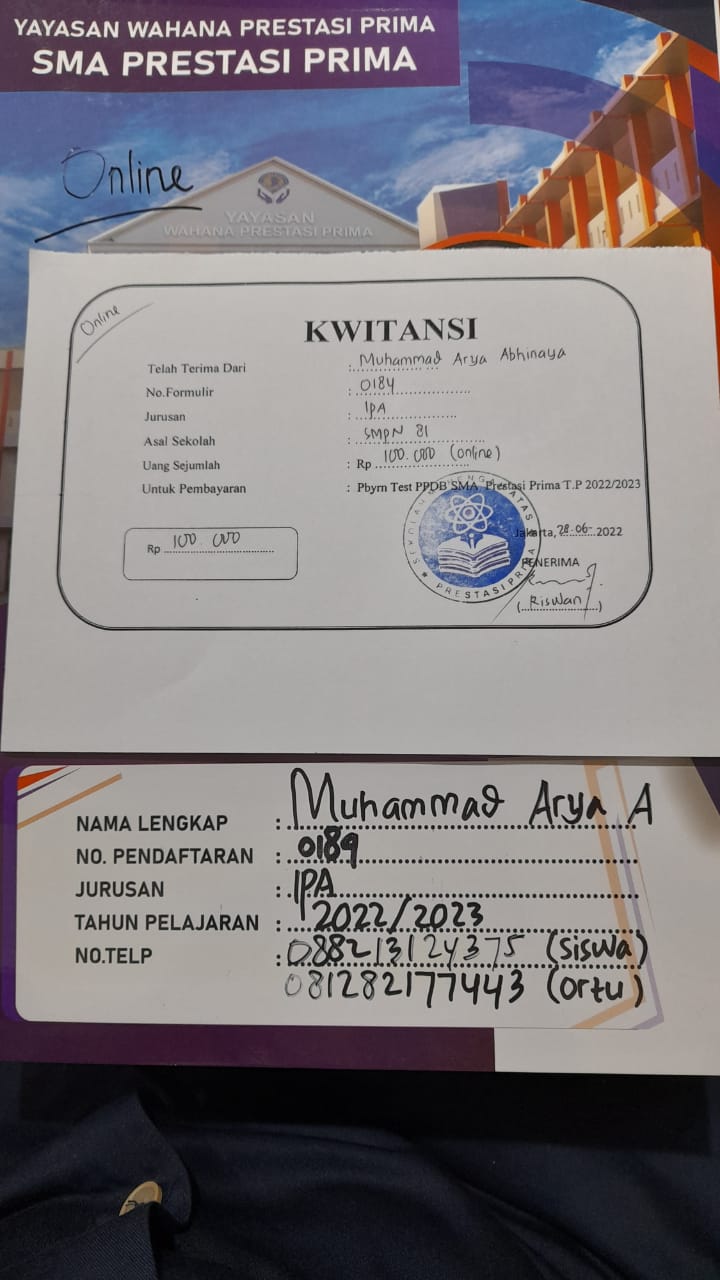 YAYASAN WAHANA PRESTASI PRIMA
SMA PRESTASI PRIMA
Online
YAYASAN
WAHANA PRESTASI PRIMA
Online
KWITANSI
Telah Terima Dari : Muhammad Arya Abhinaya
No.Formulir : 0184
Jurusan : IPA
Asal Sekolah : SMPN 81
Uang Sejumlah : Rp 100.000 (online)
Untuk Pembayaran : Pbyrn Test PPDB SMA Prestasi Prima T.P 2022/2023
Rp 100.000
PRESTASI PRIMA
Jakarta, 28-06-2022
PENERIMA
(Riswan)
NAMA LENGKAP : Muhammad Arya A
NO. PENDAFTARAN : 0189
JURUSAN : IPA
TAHUN PELAJARAN : 2022/2023
NO.TELP : 088213124375 (siswa)
081282177443 (ortu)